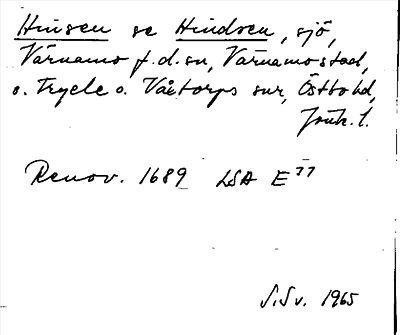 Hinsen se Hindsen, sjö,
Värnamo f.d. sn, Värnamo stad,
o. Tryele o. Våtorps snr, Östbo hd,
Jönk. l.
Renov. 1689 LSA E77
S.Sv. 1965